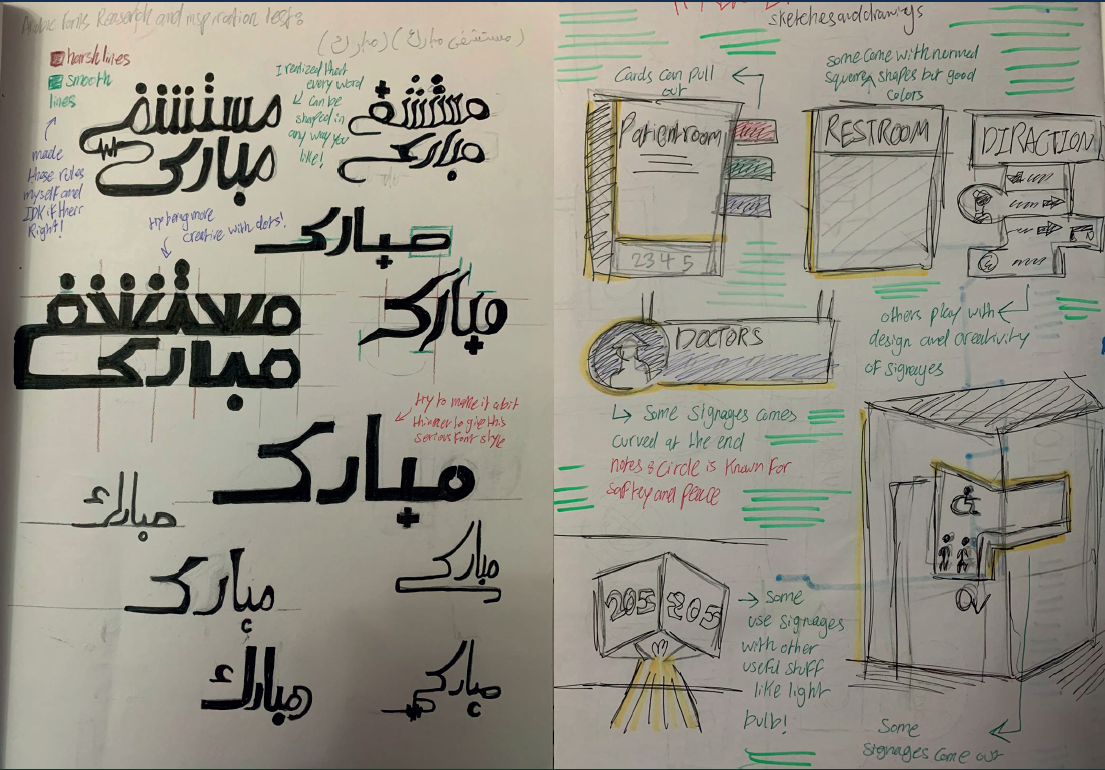 Arabic fonts Research and inspiration tests
(مستشفى مبارك) (مبارك)
harsh lines
smooth
lines
made
these rules
myself and
IDK if their
Right!
I realized that
every word
can be
shaped in
any way you
like!
مستشفى
مبارك
مستشفى
مبارك
try being more
creative with dots!
مبارك
مستشفى
مبارك
مبارك
try to make it a bit
thinner to give this
serious font style
مبارك
مبارك
مبارك
مبارك
مبارك
مبارك
sketches and drawings
Cards can pull
out
Patient room
2345
some come with normal
square shapes but good
colors
RESTROOM
DIRACTION
others play with
design and creativity
of signages
DOCTORS
Some signages comes
curved at the end
notes: Circle is known for
saftey and peace
205 205
Some
use signages
with other
useful stuff
like light
bulb!
Some
signages come out